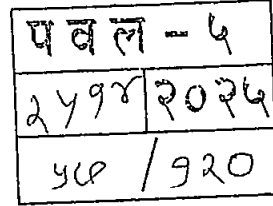 पवल - ५
२५१४ २०२५
५९ / १२०